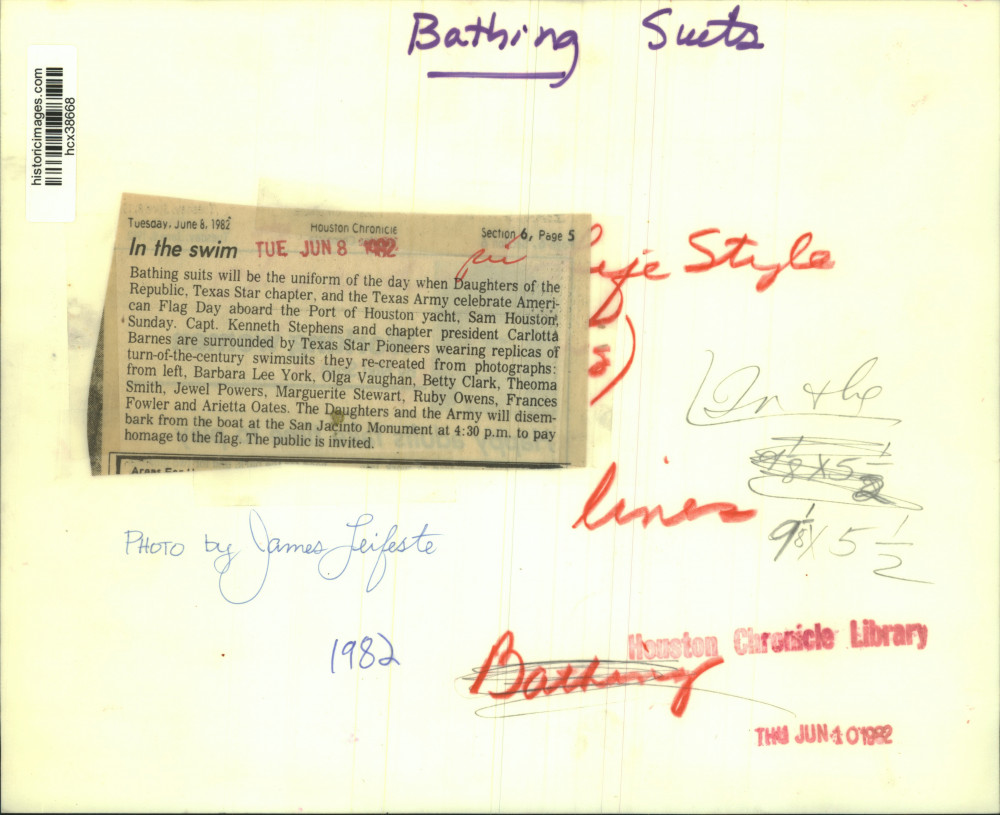 Bathing Suits
historicimages.com
hcx38668
Tuesday, June 8, 1982 Houston Chronicle Section 6, Page 5
In the swim TUE JUN 8 1982
Bathing suits will be the uniform of the day when Daughters of the
Republic, Texas Star chapter, and the Texas Army celebrate Ameri-
can Flag Day aboard the Port of Houston yacht, Sam Houston,
Sunday. Capt. Kenneth Stephens and chapter president Carlotta
Barnes are surrounded by Texas Star Pioneers wearing replicas of
turn-of-the-century swimsuits they re-created from photographs:
from left, Barbara Lee York, Olga Vaughan, Betty Clark, Theoma
Smith, Jewel Powers, Marguerite Stewart, Ruby Owens, Frances
Fowler and Arietta Oates. The Daughters and the Army will disem-
bark from the boat at the San Jacinto Monument at 4:30 p.m. to pay
homage to the flag. The public is invited.
Style
In the
lines
9 1/8 X 5 1/2
9 1/8 X 5 1/2
PHOTO by James Leifeste
1982
Houston Chronicle Library
Bathing
THU JUN 10 1982